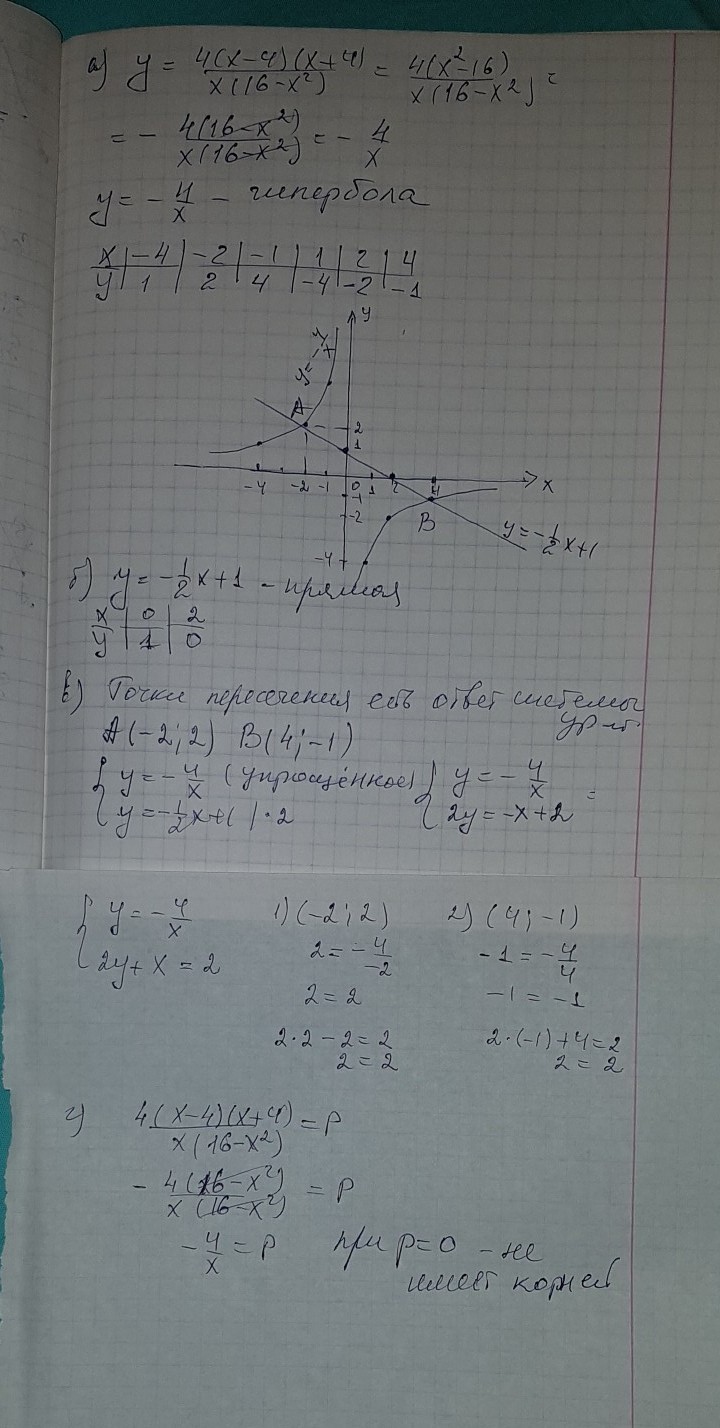 а) y = 4(x-4)(x+4) / x(16-x²) = 4(x²-16) / x(16-x²) =
= - 4(16-x²) / x(16-x²) = - 4/x
y = - 4/x - гипербола
x | -4 | -2 | -1 | 1 | 2 | 4
y | 1 | 2 | 4 | -4 | -2 | -1
y
y = -4/x
A
2
1
-4 -2 -1 0 1 2 4 x
-1
-2
B
y = -1/2x+1
-4
б) y = -1/2x+1 - прямая
x | 0 | 2
y | 1 | 0
в) Точки пересечения есть ответ системы
ур-й
A(-2; 2) B(4; -1)
{ y = -4/x (упрощённое) { y = -4/x =
{ y = -1/2x+1 | · 2 { 2y = -x+2
{ y = -4/x 1) (-2; 2) 2) (4; -1)
{ 2y + x = 2 2 = -4/-2 -1 = -4/4
2 = 2 -1 = -1
2·2 - 2 = 2 2·(-1)+4 = 2
2 = 2 2 = 2
г) 4(x-4)(x+4) / x(16-x²) = P
- 4(16-x²) / x(16-x²) = P
-4/x = P при p=0 - не
имеет корней